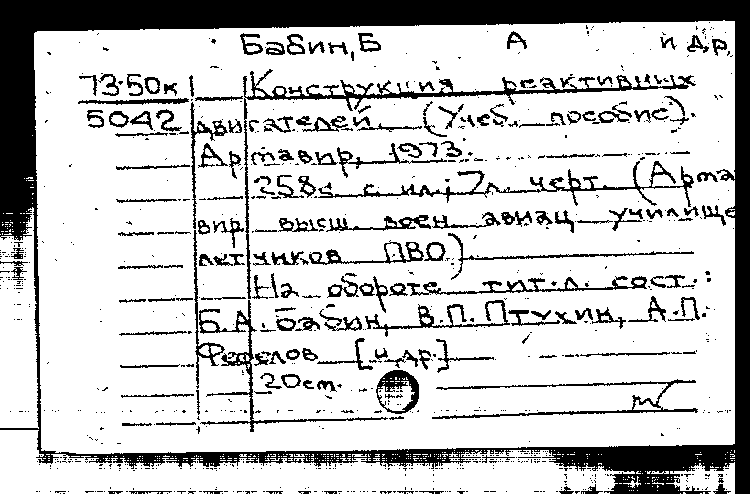 Бабин, Б А и др.
73-50к Конструкция реактивных
5042 двигателей. (Учеб. пособие).
Армавир, 1973.
258с с ил.; 7л. черт. (Арма
вир высш. воен авиац училище
лет чиков ПВО).
На обороте тит.л. сост.:
Б.А. Бабин, В.П. Птухин, А.П.
Феделов [и др.]
20см.